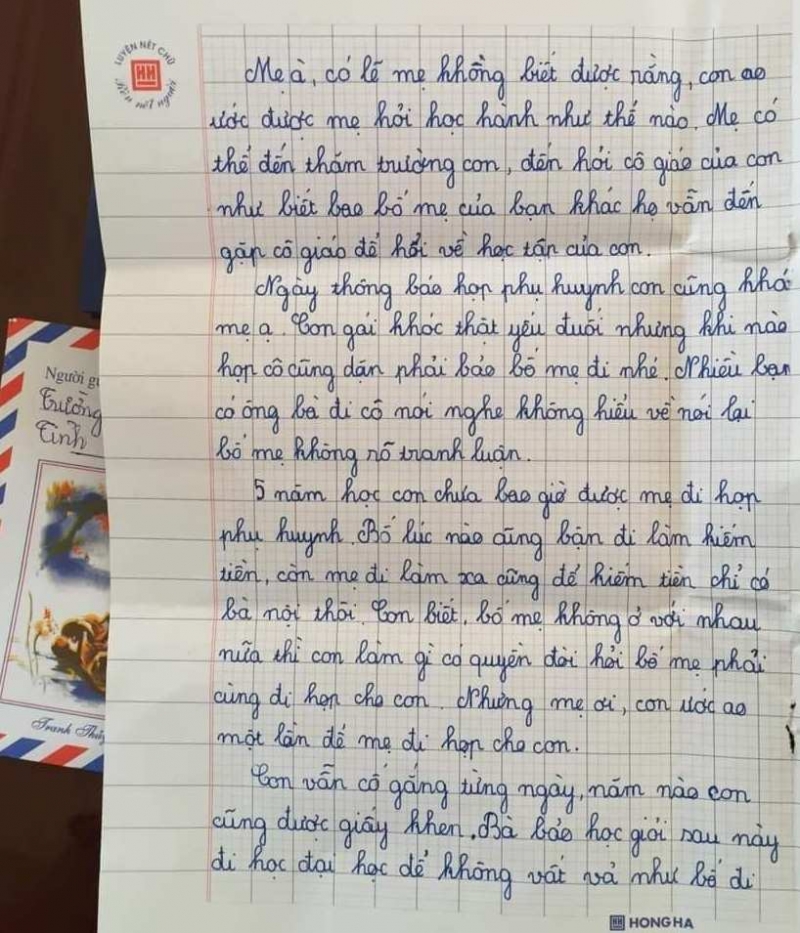 LUYỆN NÉT CHỮ
HH
rèn nết người
Mẹ à, có lẽ mẹ không biết được rằng, con ao
ước được mẹ hỏi học hành như thế nào. Mẹ có
thể đến thăm trường con, đến hỏi cô giáo của con
như biết bao bố mẹ của bạn khác họ vẫn đến
gặp cô giáo để hỏi về học tập của con.
Ngày thông báo họp phụ huynh con cũng khó
mẹ ạ. Con gái khóc thật yếu đuối nhưng khi nào
họp cô cũng dặn phải bảo bố mẹ đi nhé. Nhiều bạn
có ông bà đi cô nói nghe không hiểu về nói lại
bố mẹ không rõ tranh luận.
5 năm học con chưa bao giờ được mẹ đi họp
phụ huynh. Bố lúc nào cũng bận đi làm kiếm
tiền, còn mẹ đi làm xa cũng để kiếm tiền chỉ có
bà nội thôi. Con biết, bố mẹ không ở với nhau
nữa thì con làm gì có quyền đòi hỏi bố mẹ phải
cùng đi họp cho con. Nhưng mẹ ơi, con ước ao
một lần để mẹ đi họp cho con.
Con vẫn cố gắng từng ngày, năm nào con
cũng được giấy khen. Bà bảo học giỏi sau này
đi học đại học để không vất vả như bố đi
HH HONG HA
Người gử
Trường
Tình
Tranh Thủy